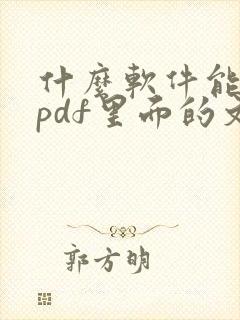 什麼軟件能
pdf里面的文
郭方明